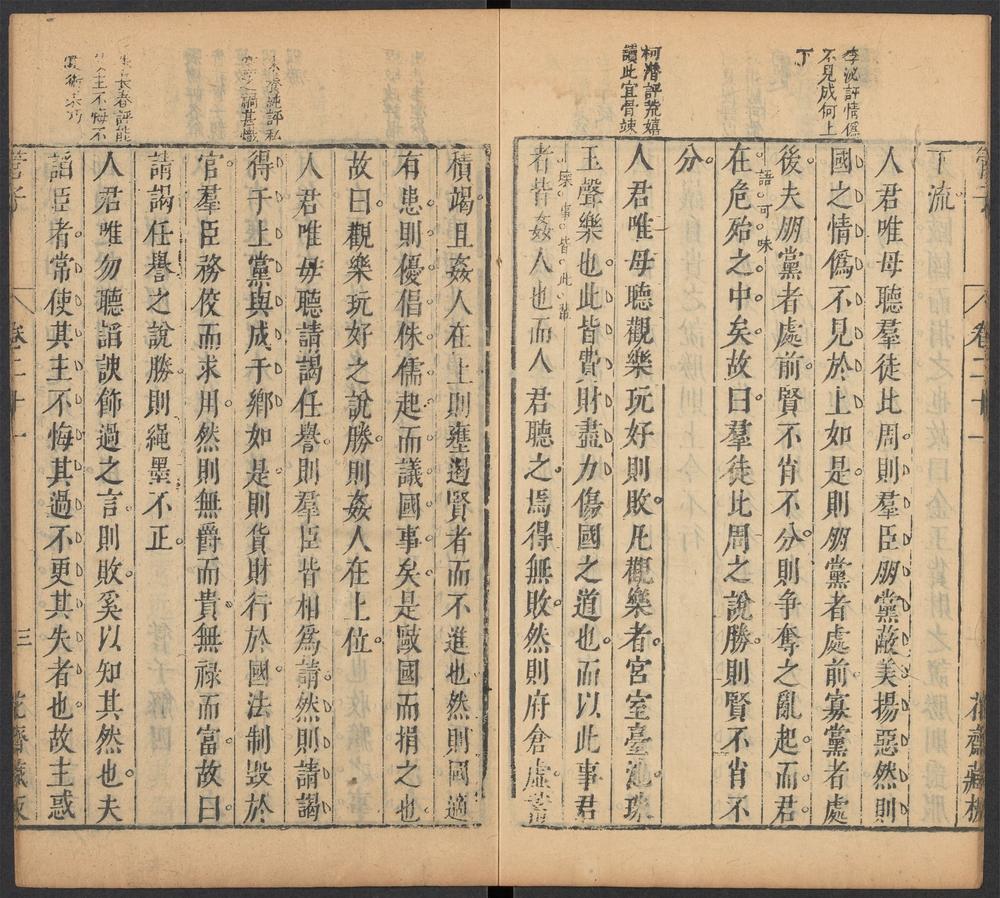 李泌評情僞
不見成何上
下
下流
人君唯毋聽羣徒比周則羣臣朋黨蔽美揚惡然則
國之情僞不見於上如是則朋黨者處前寡黨者處
後夫朋黨者處前賢不肖不分則争奪之亂起而君
語可味
在危殆之中矣故曰羣徒比周之說勝則賢不肖不
分
柯潛評荒嬉
讀此宜骨竦
人君唯毋聽觀樂玩好則敗凡觀樂者宮室臺池珠
玉聲樂也此皆費財盡力傷國之道也而以此事君
者皆姦人也而人君聽之焉得無敗然則府倉虛蓄
積竭且姦人在上則壅遏賢者而不進也然則國適
有患則優倡侏儒起而議國事矣是敺國而捐之也
故曰觀樂玩好之說勝則姦人在上位
人君唯毋聽請謁任譽則羣臣皆相爲請然則請謁
得于上黨與成于鄉如是則貨財行於國法制毀於
官羣臣務佼而求用然則無爵而貴無禄而富故曰
請謁任譽之說勝則繩墨不正
人君唯勿聽謟諛飾過之言則敗奚以知其然也夫
謟臣者常使其主不悔其過不更其失者也故主惑
管子
卷二十一
三
花齋藏板